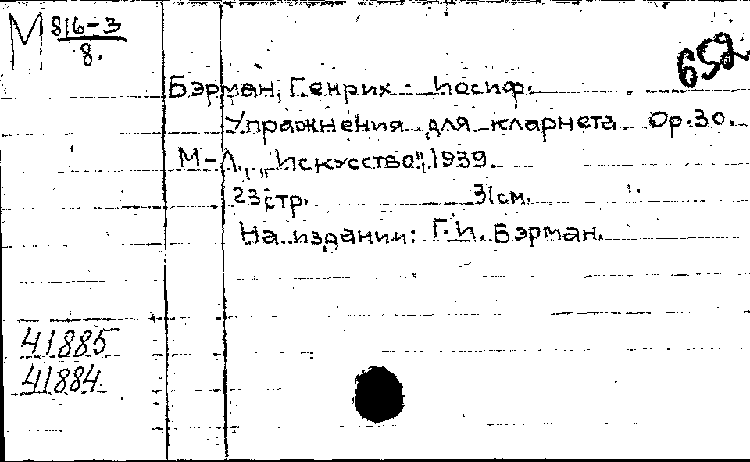 М 816-3
8.
652
Бэрман, Генрих - Иосиф.
Упражнения для кларнета Op.30.
М-Л., „Искусство", 1939.
23 стр. 31 см.
На издании: Г.И. Бэрман.
41885
41884.